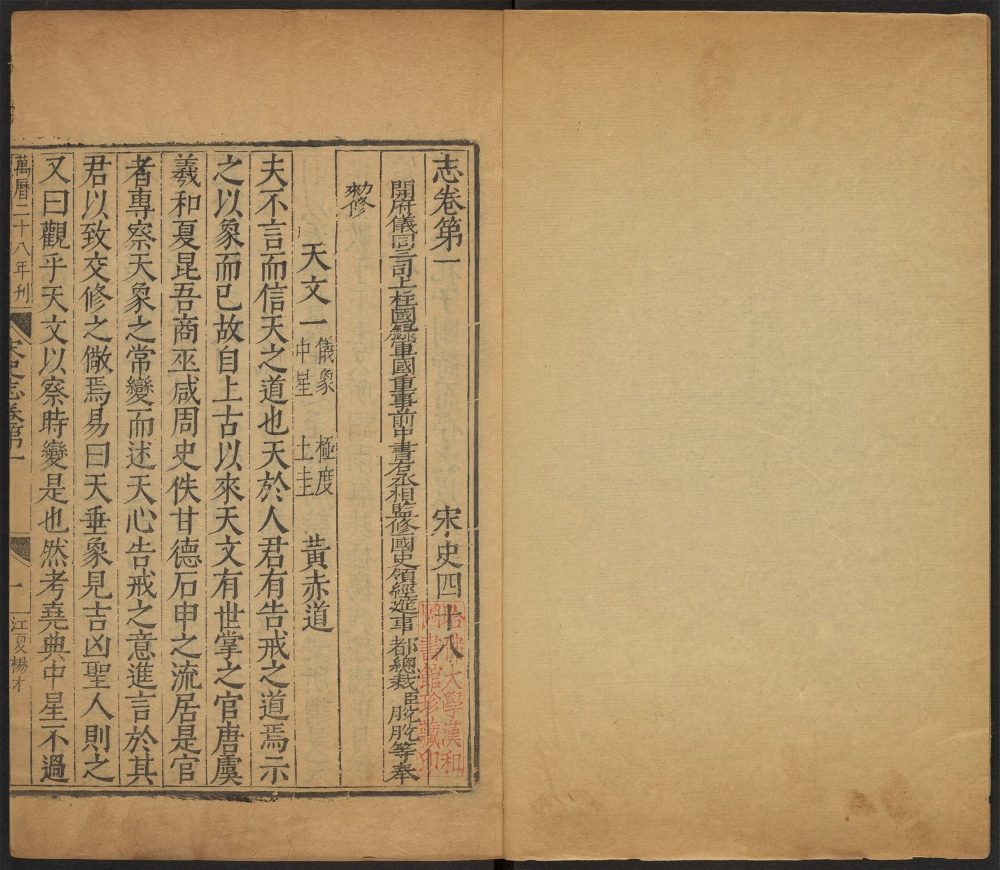 志卷第一 宋史四十八
開府儀同三司上柱國錄軍國重事前中書右丞相監修國史領經筵事都總裁臣脫脫等奉
勑修
天文一 儀象 極度 黃赤道
中星 土圭
夫不言而信天之道也天於人君有告戒之道焉示
之以象而已故自上古以來天文有世掌之官唐虞
羲和夏昆吾商巫咸周史佚甘德石申之流居是官
者專察天象之常變而述天心告戒之意進言於其
君以致交修之儆焉易曰天垂象見吉凶聖人則之
又曰觀乎天文以察時變是也然考堯典中星不過
萬曆二十八年刊
宋史志卷第一
一
江夏楊才
哈佛大學漢和
圖書館珍藏印